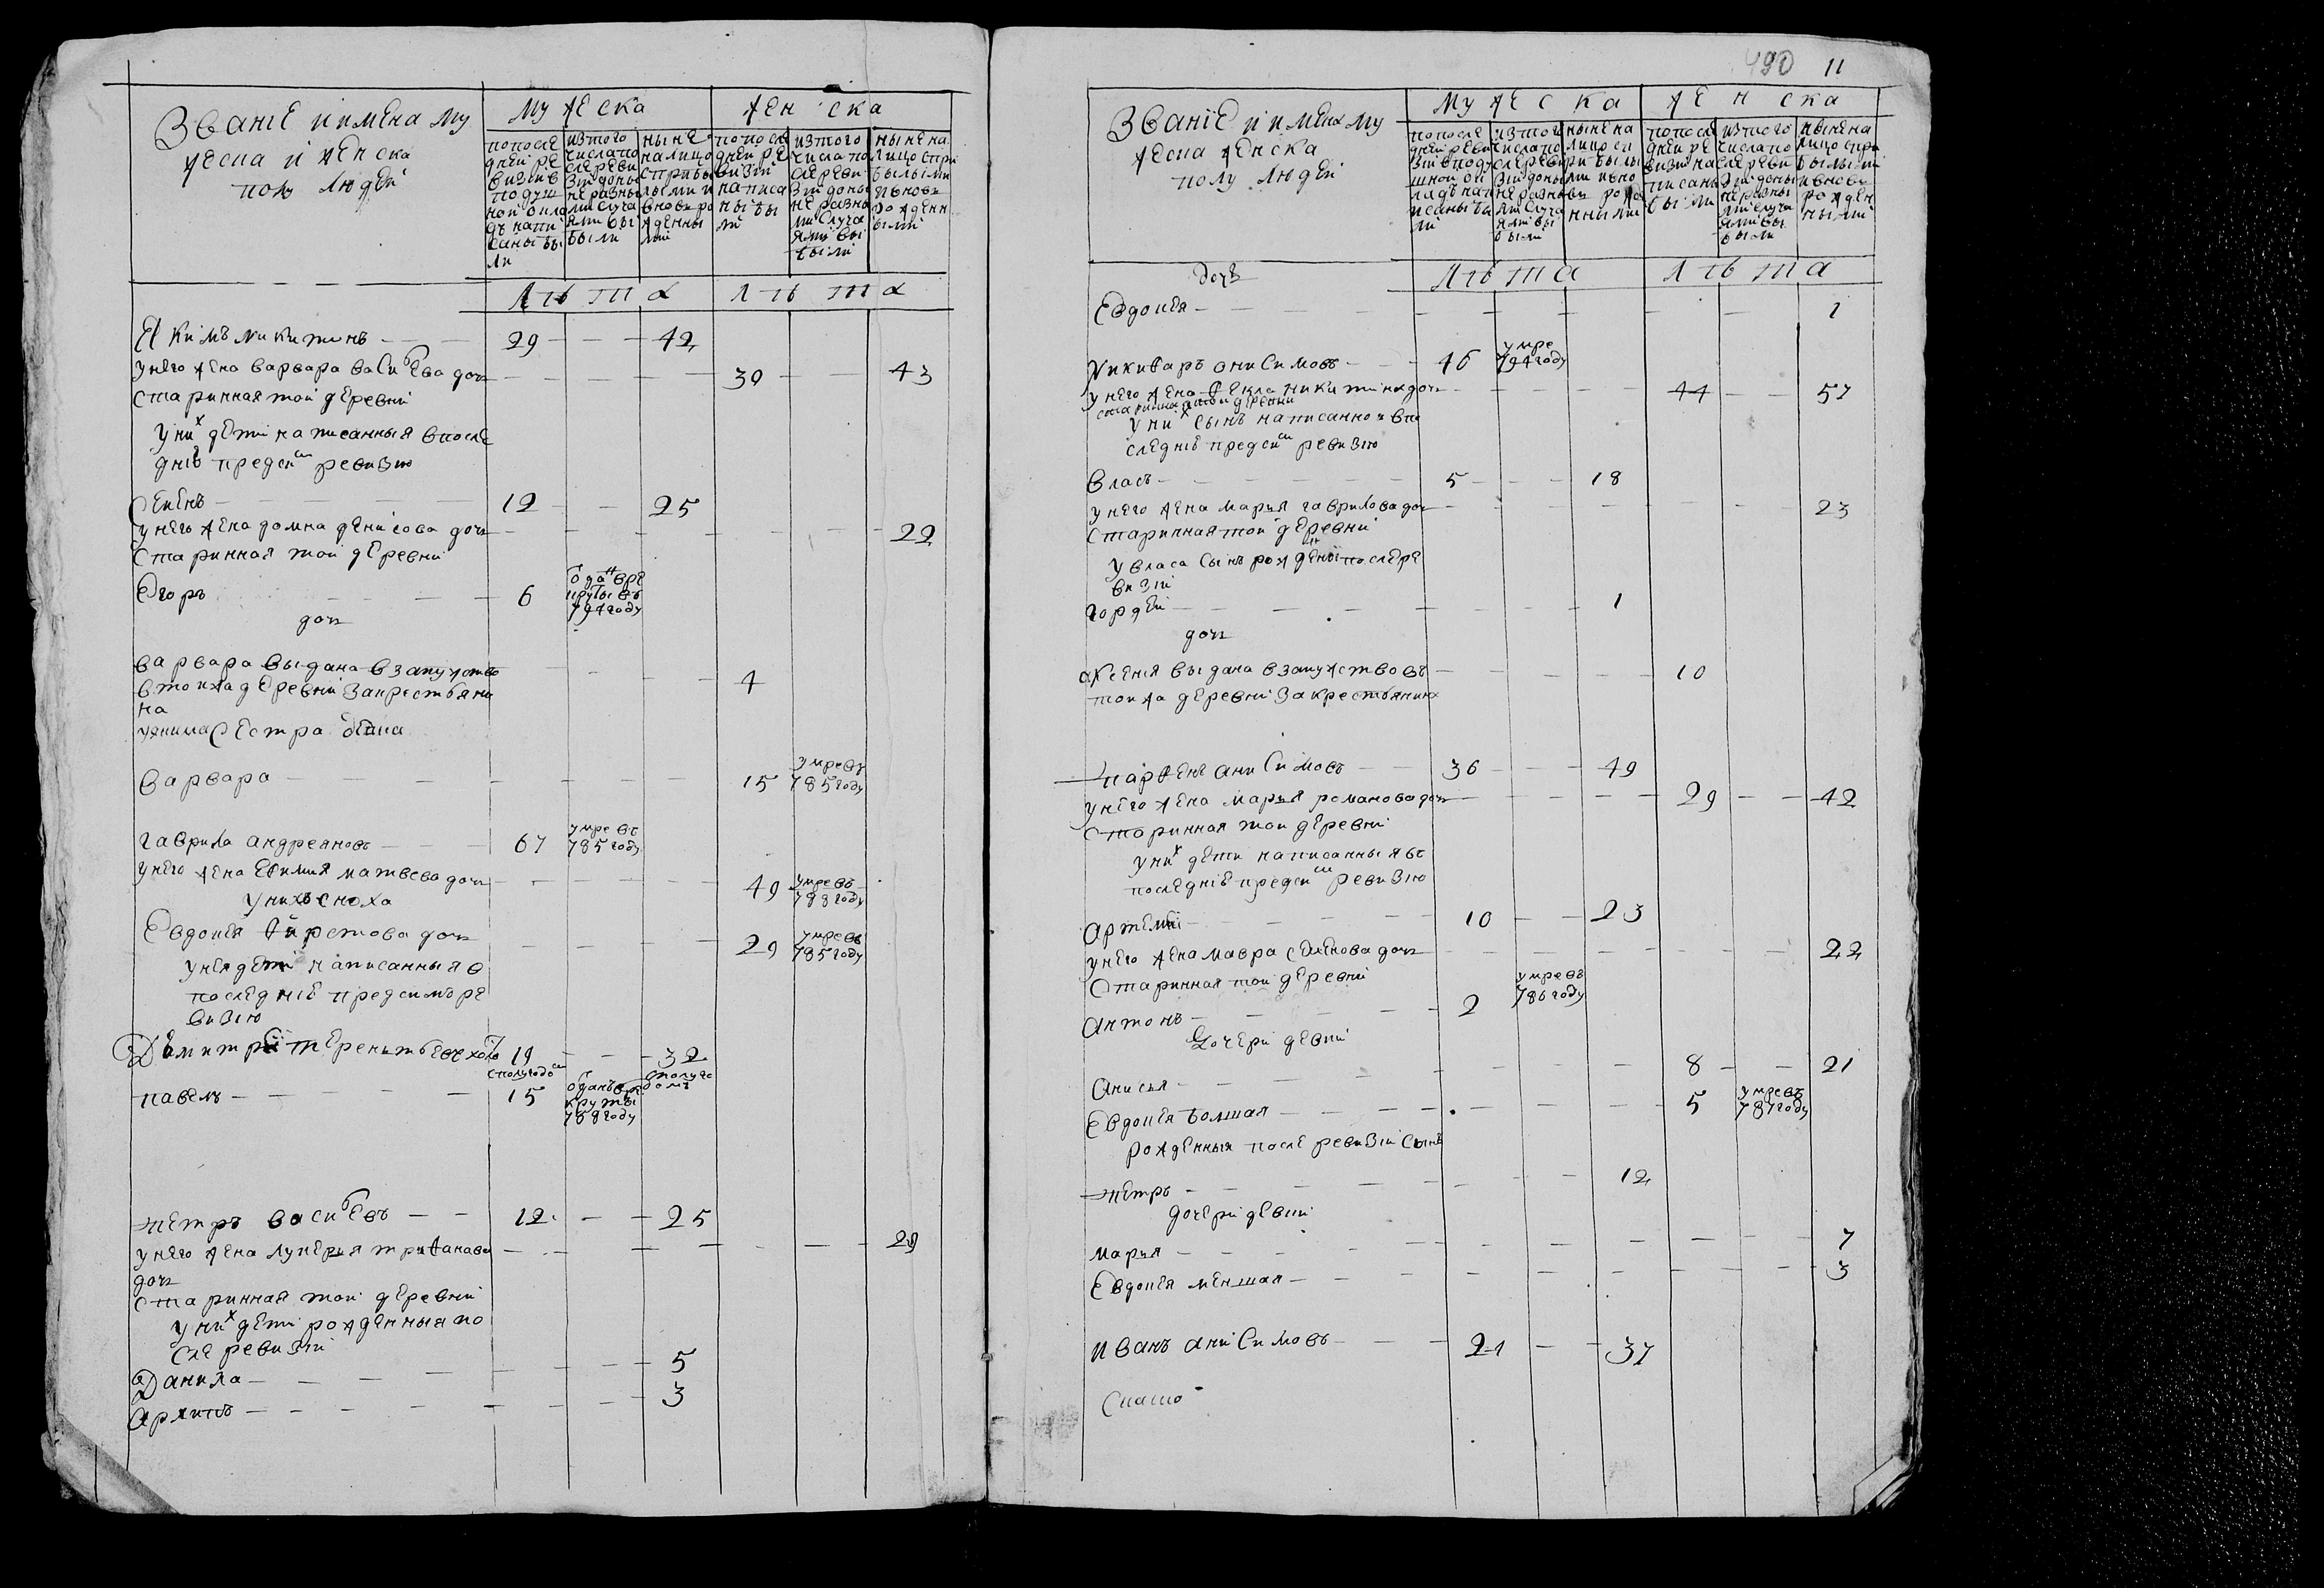 Званіе и имена му
жеска и женска
полу людей
мужеска
женска
попосле
дней ре
визіи в
подуш
ной окла
дъ напи
саны бы
ли
изтого
числа по
сле реви
зіи доны
не разны
ми случа
ями вы
были
ныне
налицо
с прибы
лыми и
вновь ро
жденны
ми
попосле
дней ре
визіи
написа
ны бы
ли
изтого
числа по
сле реви
зіи доны
не разны
ми случа
ями вы
были
ныне на
лицо с при
былыми
и вновь
рожденн
ыми
Лѣта
Лѣта
Якимъ никитинъ — 29 — — 42
у него жена варвара васильева дочь — 30 — 43
старинная той деревни
у них дети написанныя в после
дніе предсим ревизию
Семенъ — 12 — — 25
у него жена домна денисова дочь — 22
старинная той деревни
Егоръ — 6 отдан в ре
круты въ
794 году
дочь
варвара выдана в замужство — 4
в той жа деревни за крестьяни
на
у якима сестра
варвара — 15 умре въ
785 году
гаврила андреяновъ — 67 умре въ
785 году
у него жена ефимия матвеева дочь — 49 умре въ
788 году
у нихъ сноха
Евдокея фирстова дочь — 29 умре въ
785 году
у нея дети написанныя в
последніе предсимъ ре
визию
Дъмитрей терентьевъ холо 19 — — 32
с полугодом с полуго
домъ
павелъ — 15 отданъ в ре
круты
788 году
петръ васильевъ — 12 — — 25
у него жена лукерья трифанава — 29
дочь
старинная той деревни
у них дети рожденныя по
сле ревизіи
Данила — 5
Архипъ — 3
490 11
Званіе и имена му
жеска женска
полу людей
мужеска
женска
попосле
дней реви
зіи в поду
шной ок
ладъ нап
исаны бы
ли
изтого
числа по
сле реви
зіи доны
не разны
ми случа
ями вы
были
ныне на
лицо с п
рибылы
ми и вно
вь рожде
нными
попосле
дней ре
визіи на
писаны
были
изтого
числа по
сле реви
зіи доны
не разны
ми случа
ями вы
были
ныне на
лицо с при
былыми
и вновь
рожден
ными
дочь
Лѣта
Лѣта
Евдокея — 1
Никифаръ онисимовъ — 46 умре
794 году
у него жена фекла никитина дочь — 44 — — 57
старинная той деревни
у них сынъ написанной в по
следніе предсим ревизию
власъ — 5 — — 18
у него жена марья гаврилова дочь — 23
старинная той деревни
у власа сынъ рожденны после ре
визіи
гордей — 1
дочь
аксенья выдана в замужство въ — 10
той жа деревни за крестьянина
парфенъ анисимовъ — 36 — — 49
у него жена марья романова дочь — 29 — — 42
старинная той деревни
у них дети написанныя въ
последніе предсим ревизию
Артемеи — 10 — — 23
у него жена мавра семенова дочь — 22
старинная той деревни
антонъ — 2 умре въ
786 году
дочери девки
Анисья — 8 — — 21
Евдокея болшая — 5 умре въ
787 году
рожденныя после ревизіи сынъ
петръ — 12
дочери девки
марья — 7
Евдокея меншая — 3
иванъ анисимовъ — 24 — — 37